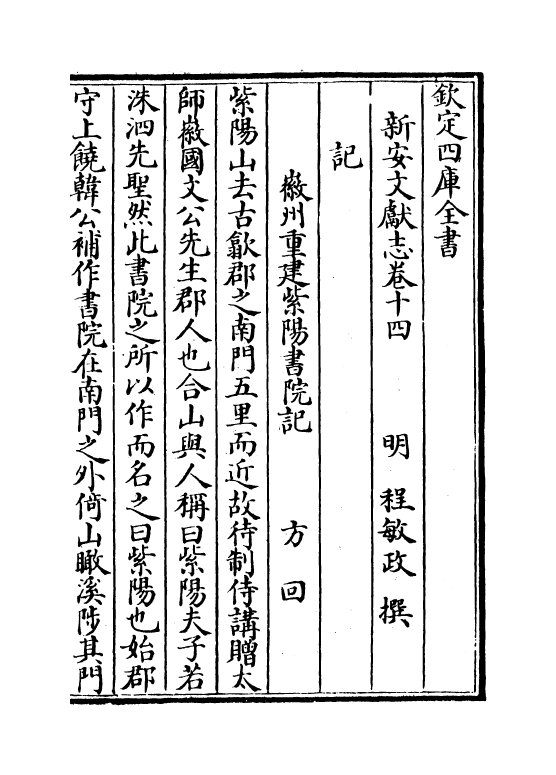 欽定四庫全書
新安文獻志卷十四 明 程敏政 撰
記
徽州重建紫陽書院記 方回
紫陽山去古歙郡之南門五里而近故待制侍講贈太
師徽國文公先生郡人也合山與人稱曰紫陽夫子若
洙泗先聖然此書院之所以作而名之曰紫陽也始郡
守上饒韓公補作書院在南門之外倚山瞰溪陟其門